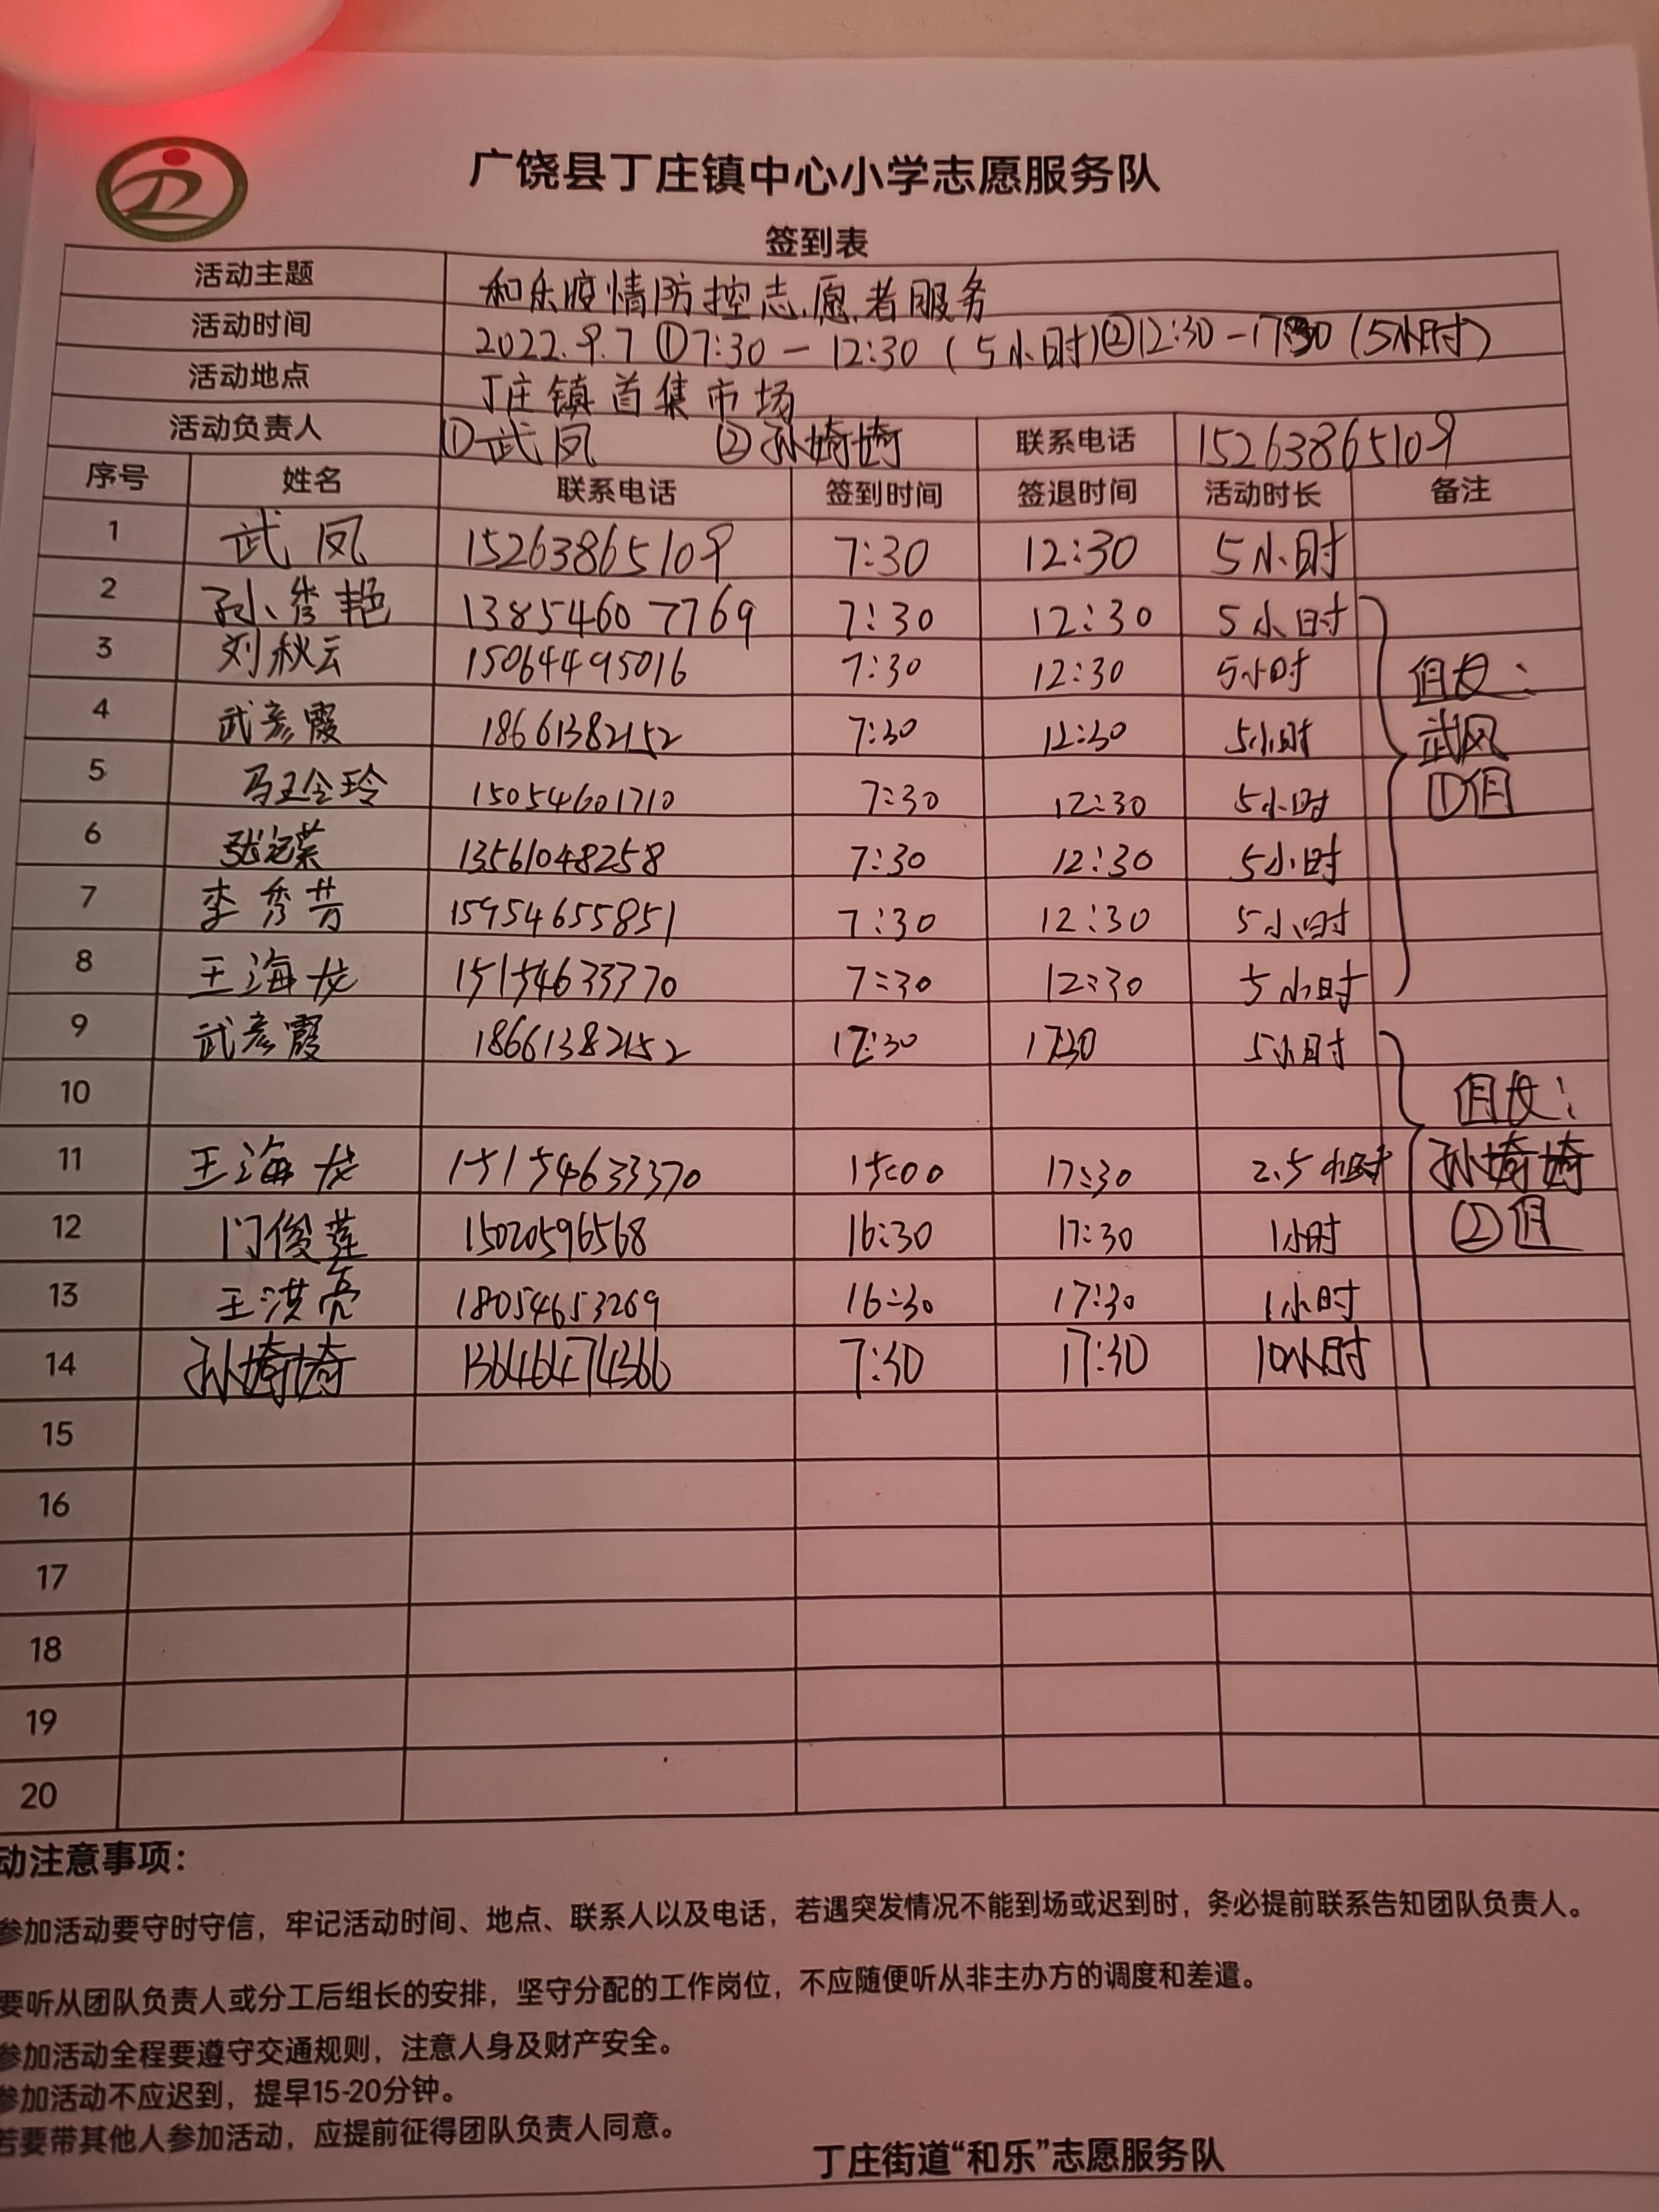 广饶县丁庄镇中心小学志愿服务队
签到表
活动主题 和乐疫情防控志愿者服务
活动时间 2022.9.7 ①7:30-12:30(5小时)②12:30-17:30(5小时)
活动地点 丁庄镇首集市场
活动负责人 ①武凤 ②孙埼埼 联系电话 15263865109
序号 姓名 联系电话 签到时间 签退时间 活动时长 备注
1 武凤 15263865109 7:30 12:30 5小时
2 孙秀艳 13854607769 7:30 12:30 5小时
3 刘秋云 15064495016 7:30 12:30 5小时 但女:
4 武彦霞 18661382152 7:30 12:30 5小时 武凤
5 马玲 15054601710 7:30 12:30 5小时 ①但
6 张荣 13561048258 7:30 12:30 5小时
7 李秀芳 15954655851 7:30 12:30 5小时
8 王海龙 15154633370 7:30 12:30 5小时
9 武彦霞 18661382152 17:30 5小时
10 但女:
11 王海龙 15154633370 15:00 17:30 2.5小时 孙埼埼
12 门俊莲 15020596568 16:30 17:30 1小时 ②但
13 王洪亮 18054653269 16:30 17:30 1小时
14 孙埼埼 13646474366 7:30 17:30 10小时
15
16
17
18
19
20
动注意事项:
参加活动要守时守信，牢记活动时间、地点、联系人以及电话，若遇突发情况不能到场或迟到时，务必提前联系告知团队负责人。
要听从团队负责人或分工后组长的安排，坚守分配的工作岗位，不应随便听从非主办方的调度和差遣。
参加活动全程要遵守交通规则，注意人身及财产安全。
参加活动不应迟到，提早15-20分钟。
若要带其他人参加活动，应提前征得团队负责人同意。
丁庄街道“和乐”志愿服务队